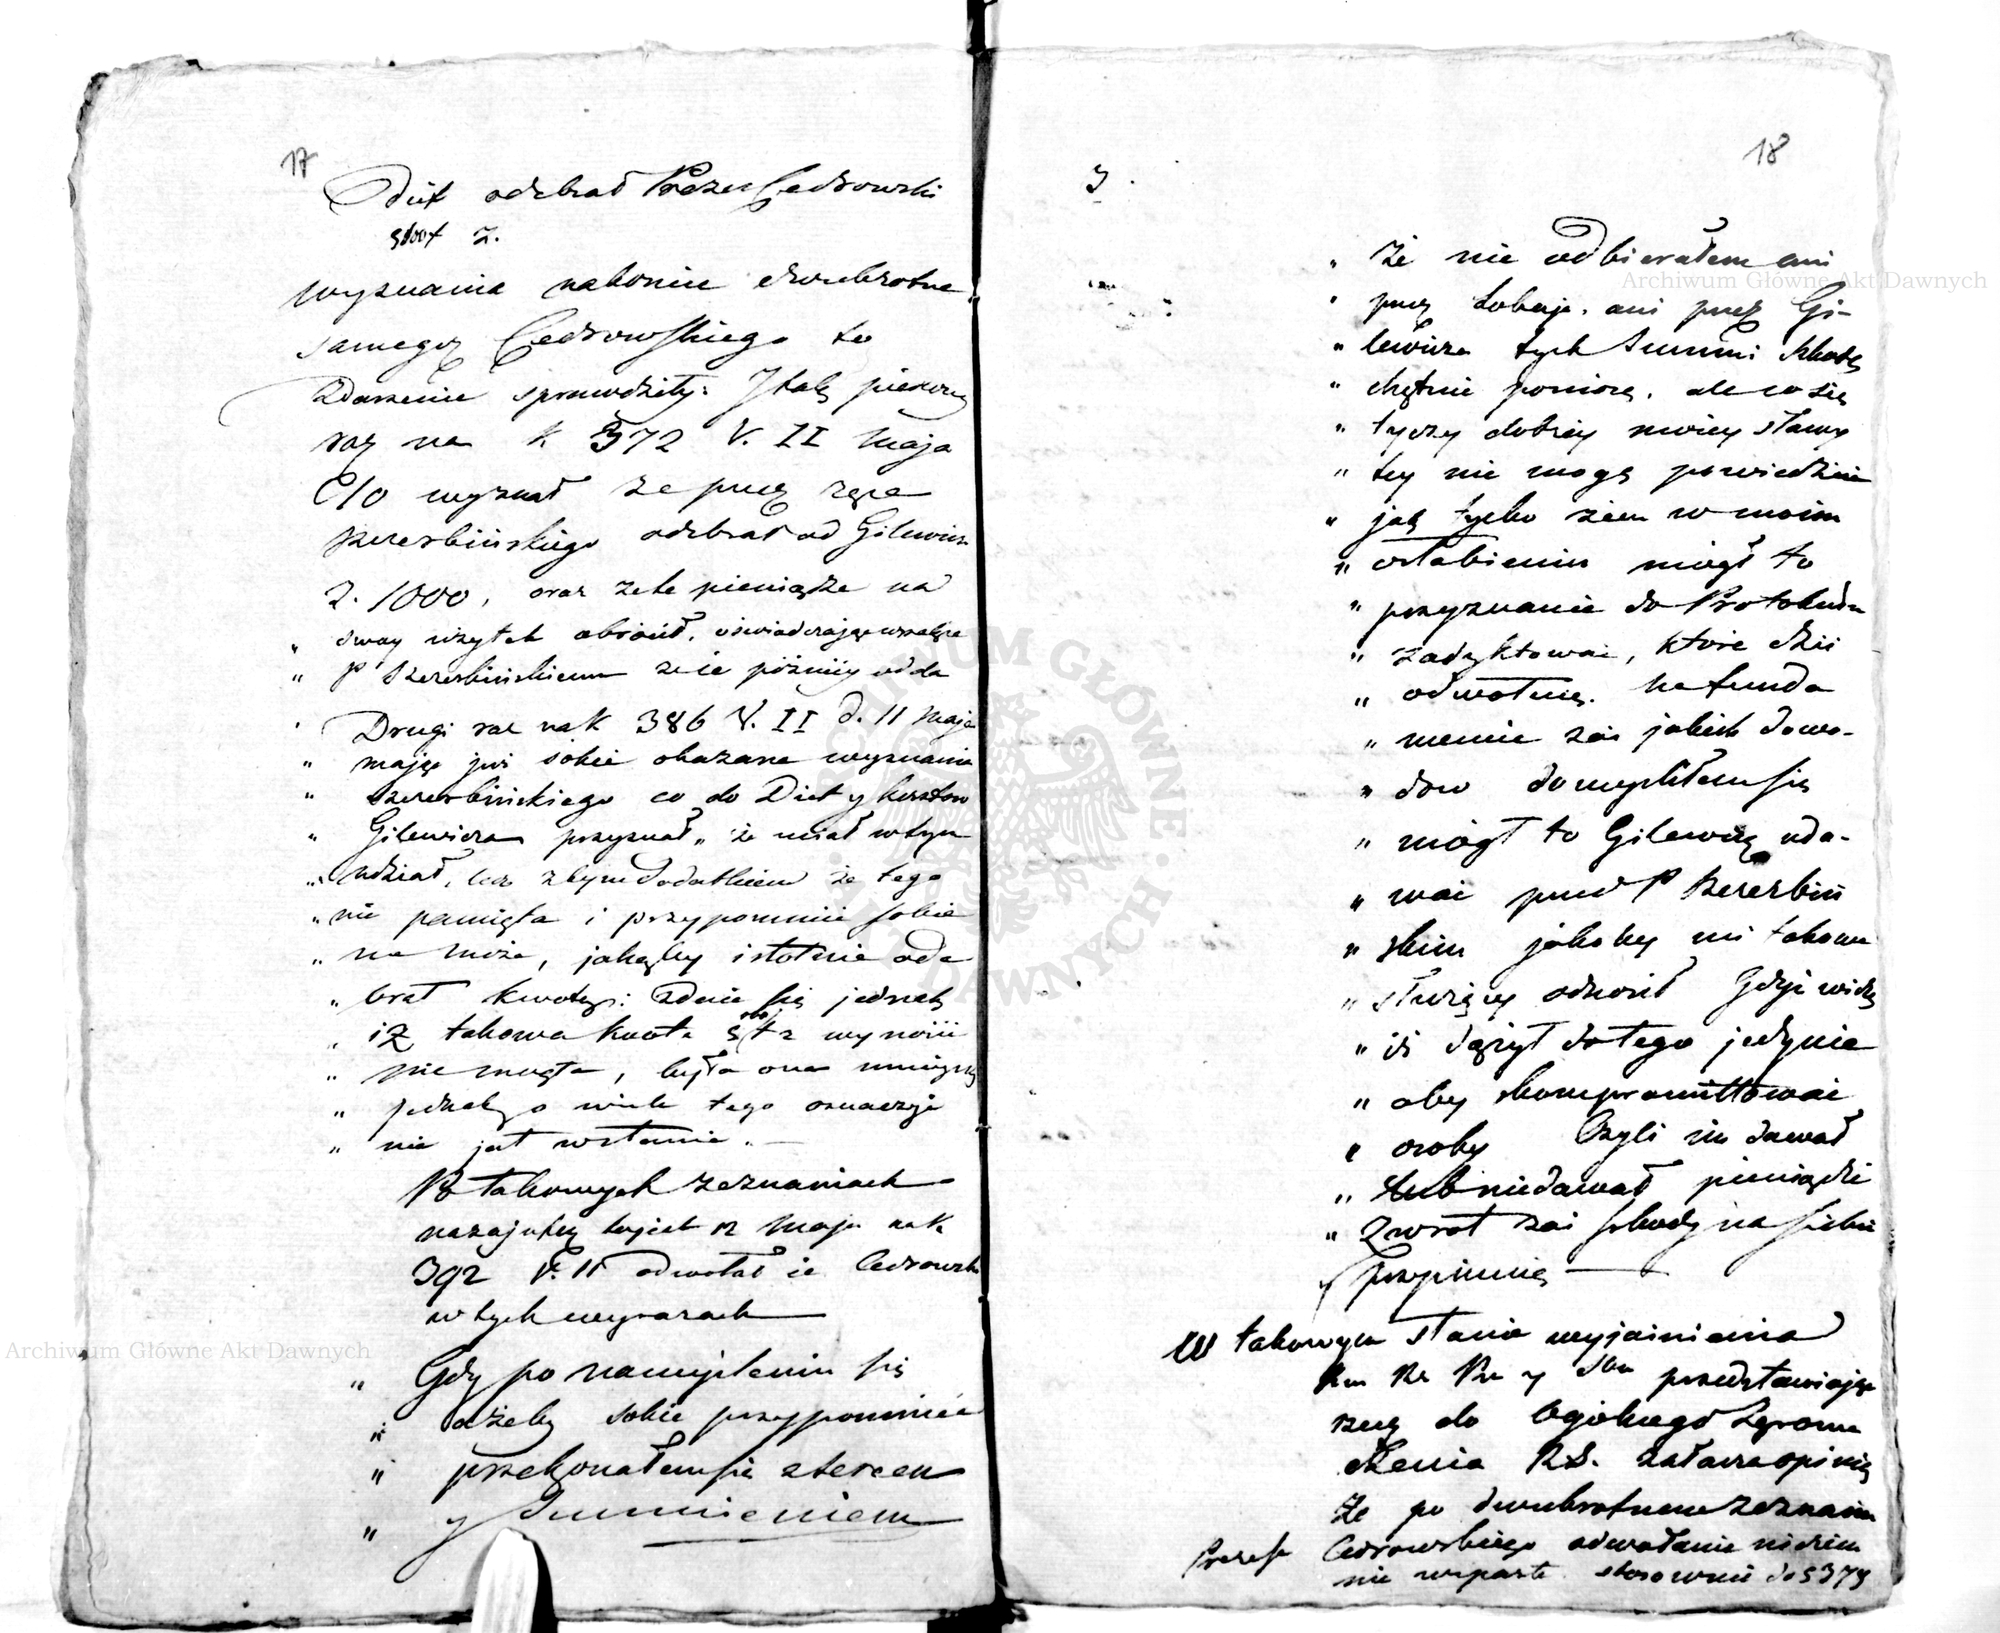 17
Diet odebrał Prezes Cedrowski
z.
wyznania nakoniec dwukrotne
samegoż Cedrowskiego to
Zdarzenie sprawdziły: I tak pierwszy
raz na k 372 V. II Maja
wyznał że przez ręce
Szczerbińskiego odebrał od Gilewicza
Z. 1000, oraz że te pieniądze na
„ swoy użytek obrócił, oświadczając wszakże
„ P Szczerbińskiemu że je późniey odda
Drugi raz na k 386 V. II d. 11 Maja
„ mając już sobie okazane wyznanie
„ Szczerbińskiego co do Diet y kosztów
„ Gilewicza przyznał „ że miał w tym
„ udział, lecz z tym dodatkiem że tego
„ nie pamięta i przypomnieć sobie
„ nie może, jakąby istotnie ode
„ brał kwotę: Zdaie się jednak
„ iż takowa kwota wynosić
„ nie mogła, była ona mnieysza
„ jednak o wiele tego oznaczyć
„ nie jest w stanie. —
Po takowych zeznaniach
nazajutrz to jest 12 Maja na k
392 V. II odwołał je Cedrowski
w tych wyrazach
„ Gdy po namyśleniu się
„ ażeby sobie przypomnieć
„ przekonałem się z sercem
„ y Sumnieniem
18
3.
„ że nie odbierałem ani
„ przez Łobaję, ani przez Gi-
„ lewicza tych Summ Szkodę
„ chętnie poniosę, ale co się
„ tyczy dobrey moiey sławy
„ tey nie mogę powiedzieć
„ jak tylko żem w moim
„ osłabieniu mógł to
„ przyznanie do Protokułu
„ zadyktować, które dziś
„ odwołuię. Na funda
„ mencie zaś jakich dowo-
„ dow domyśliłem się
„ mógł to Gilewicz uda-
„ wać przed P Szczerbiń
„ skim jakoby mi takowe
„ służący odnosił Gdyż widzę
„ iż dążył do tego jedynie
„ aby skompromittować
„ osoby Czyli im dawał
„ lub nie dawał pieniądze
„ Zwrot zaś szkody na siebie
„ przyimuię —
W takowym stanie wyjaśnienia
przedstawiając
rzecz do Ogólnego Zgroma
dzenia R.S. załącza opinię
że po dwukrotnem zeznaniu
Prezesa Cedrowskiego odwołanie niczem
nie wsparte stosownie do § 379
Archiwum Główne Akt Dawnych
Archiwum Główne Akt Dawnych
ARCHIWUM GŁÓWNE AKT DAWNYCH